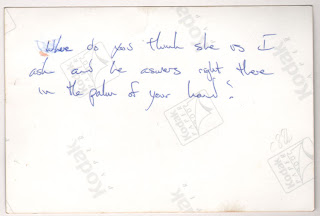 Where do you think she is I
ask and he aswers right there
in the palm of your hand!
Kodak
Kodak
Kodak
Kodak
Kodak